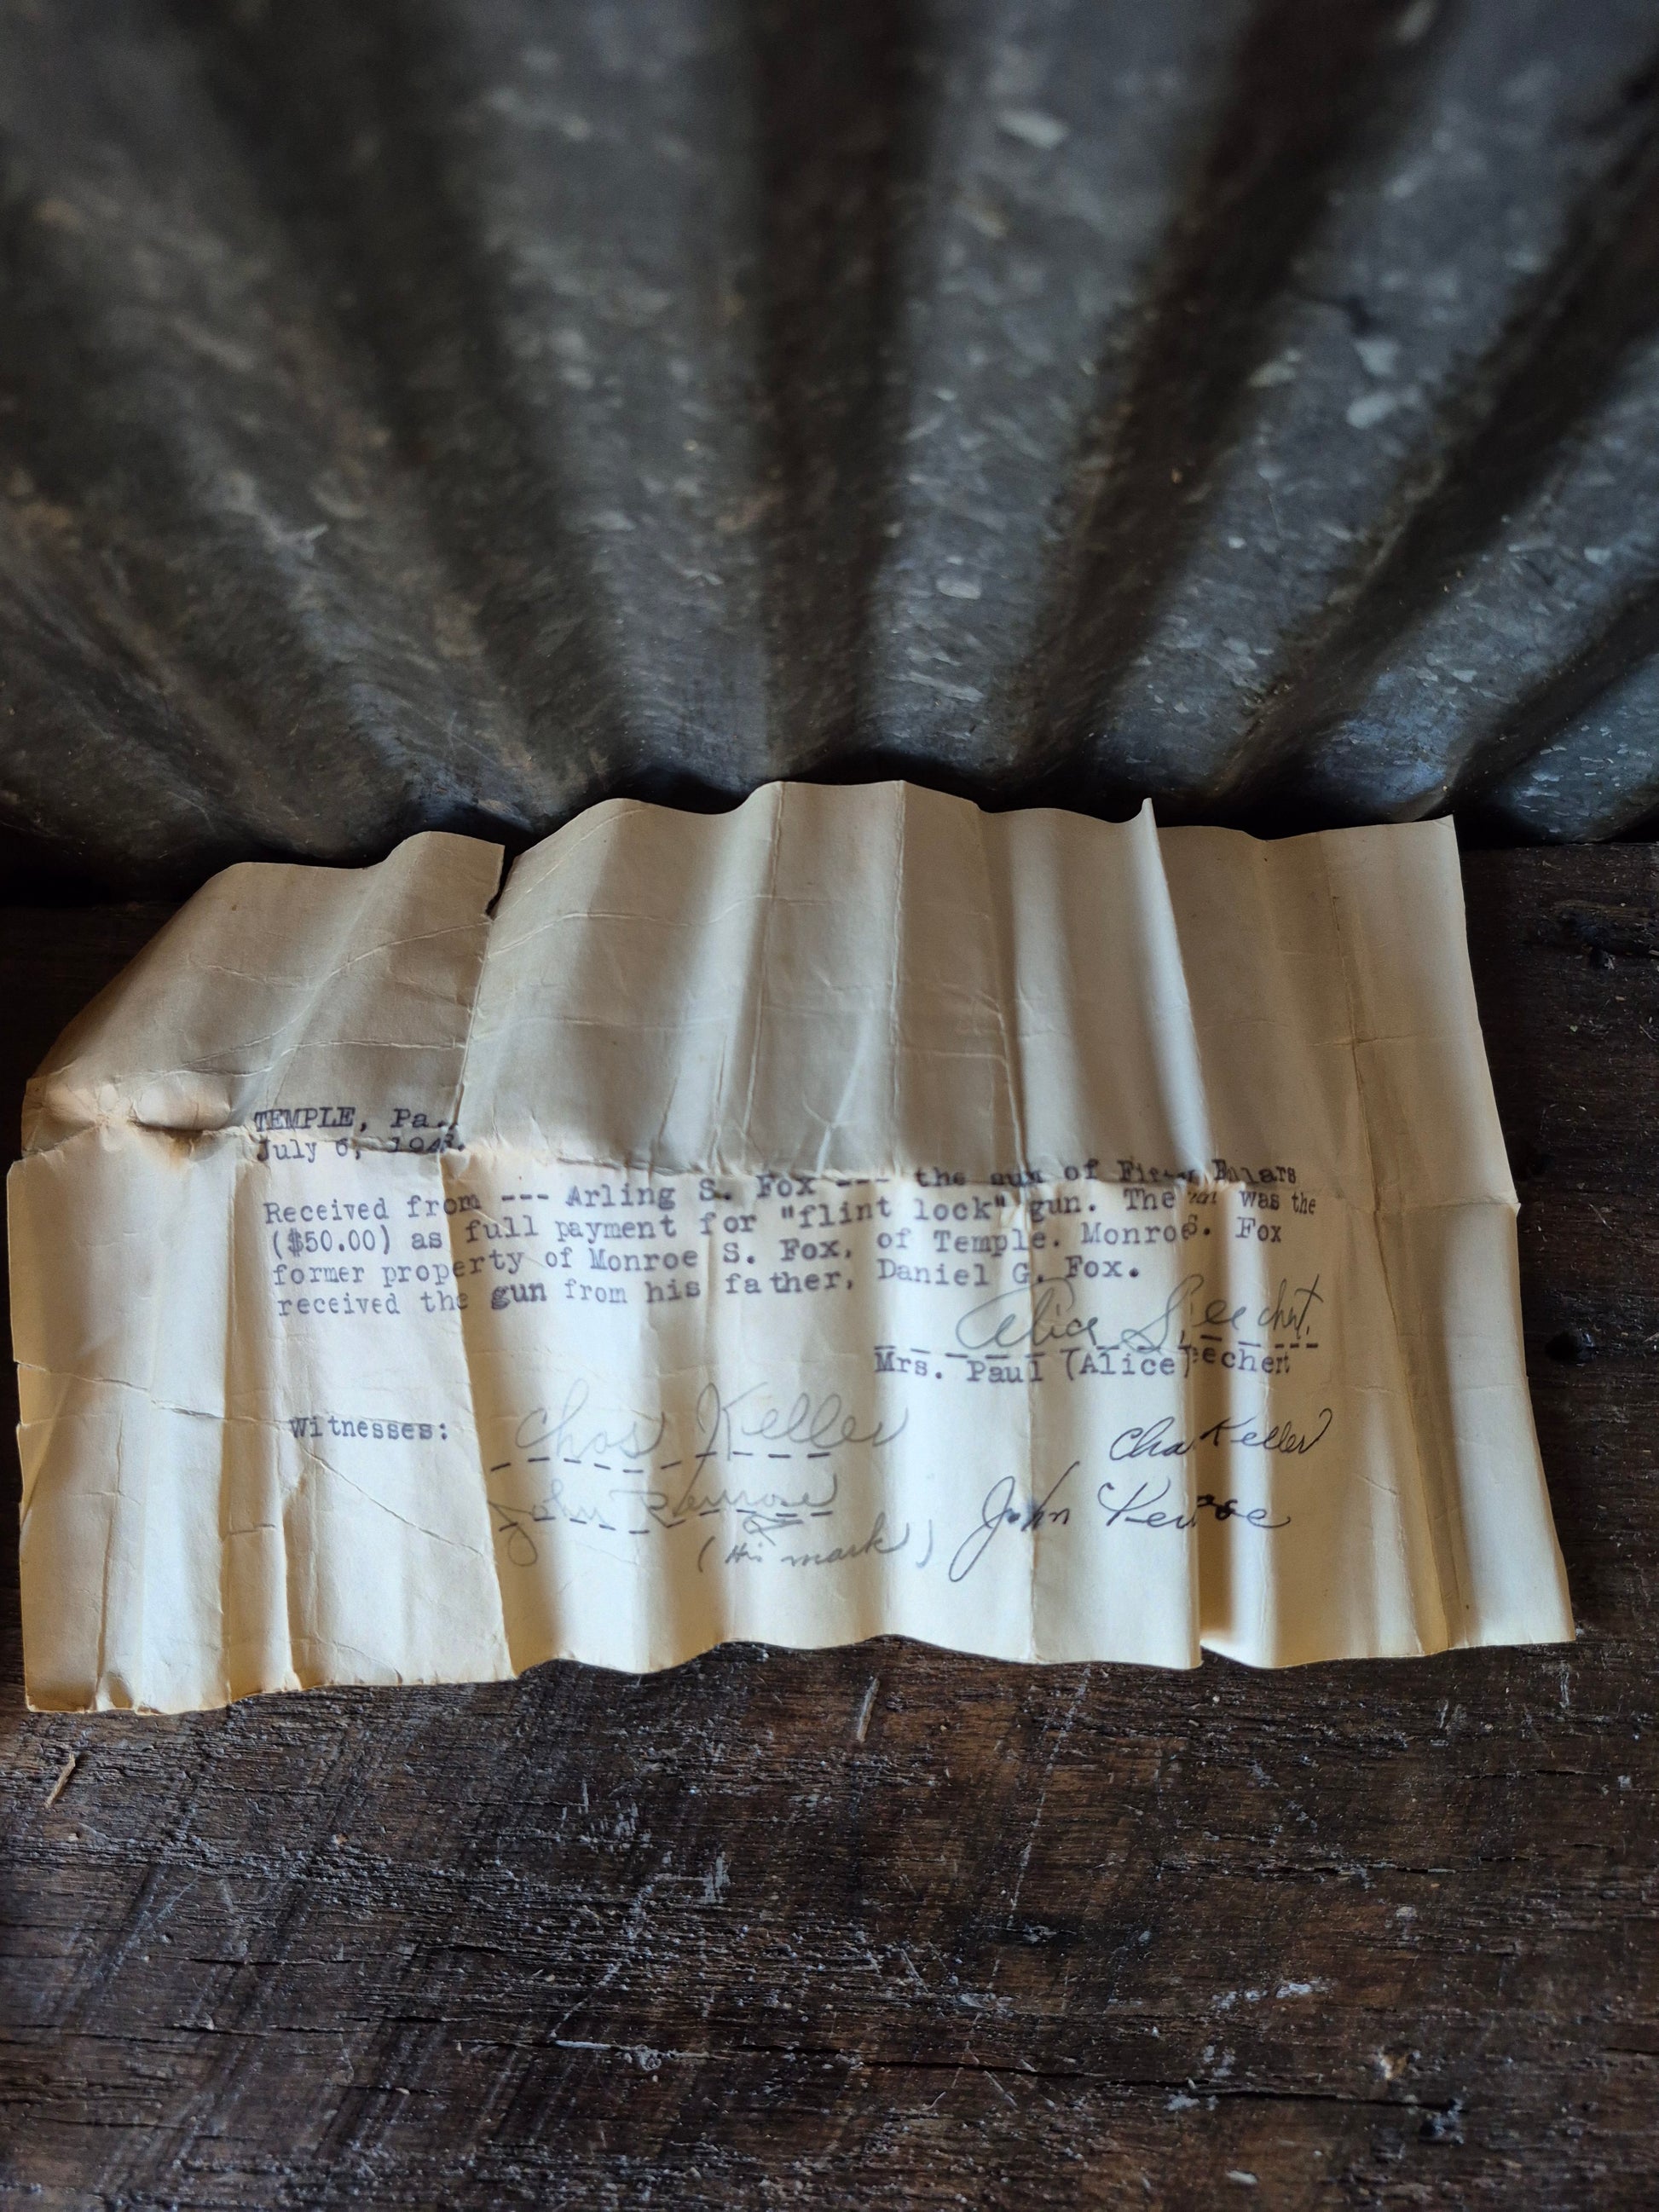 TEMPLE, Pa.,
July 6, 194
Received from --- Arling S. Fox --- the sum of Fifty
($50.00) as full payment for "flint lock" gun. The was the
former property of Monroe S. Fox, of Temple. Monroe S. Fox
received the gun from his father, Daniel G. Fox.
Alice S.
Mrs. Paul (Alice)
Witnesses: Chas Keller Cha Keller
John Penrose John
(His mark)